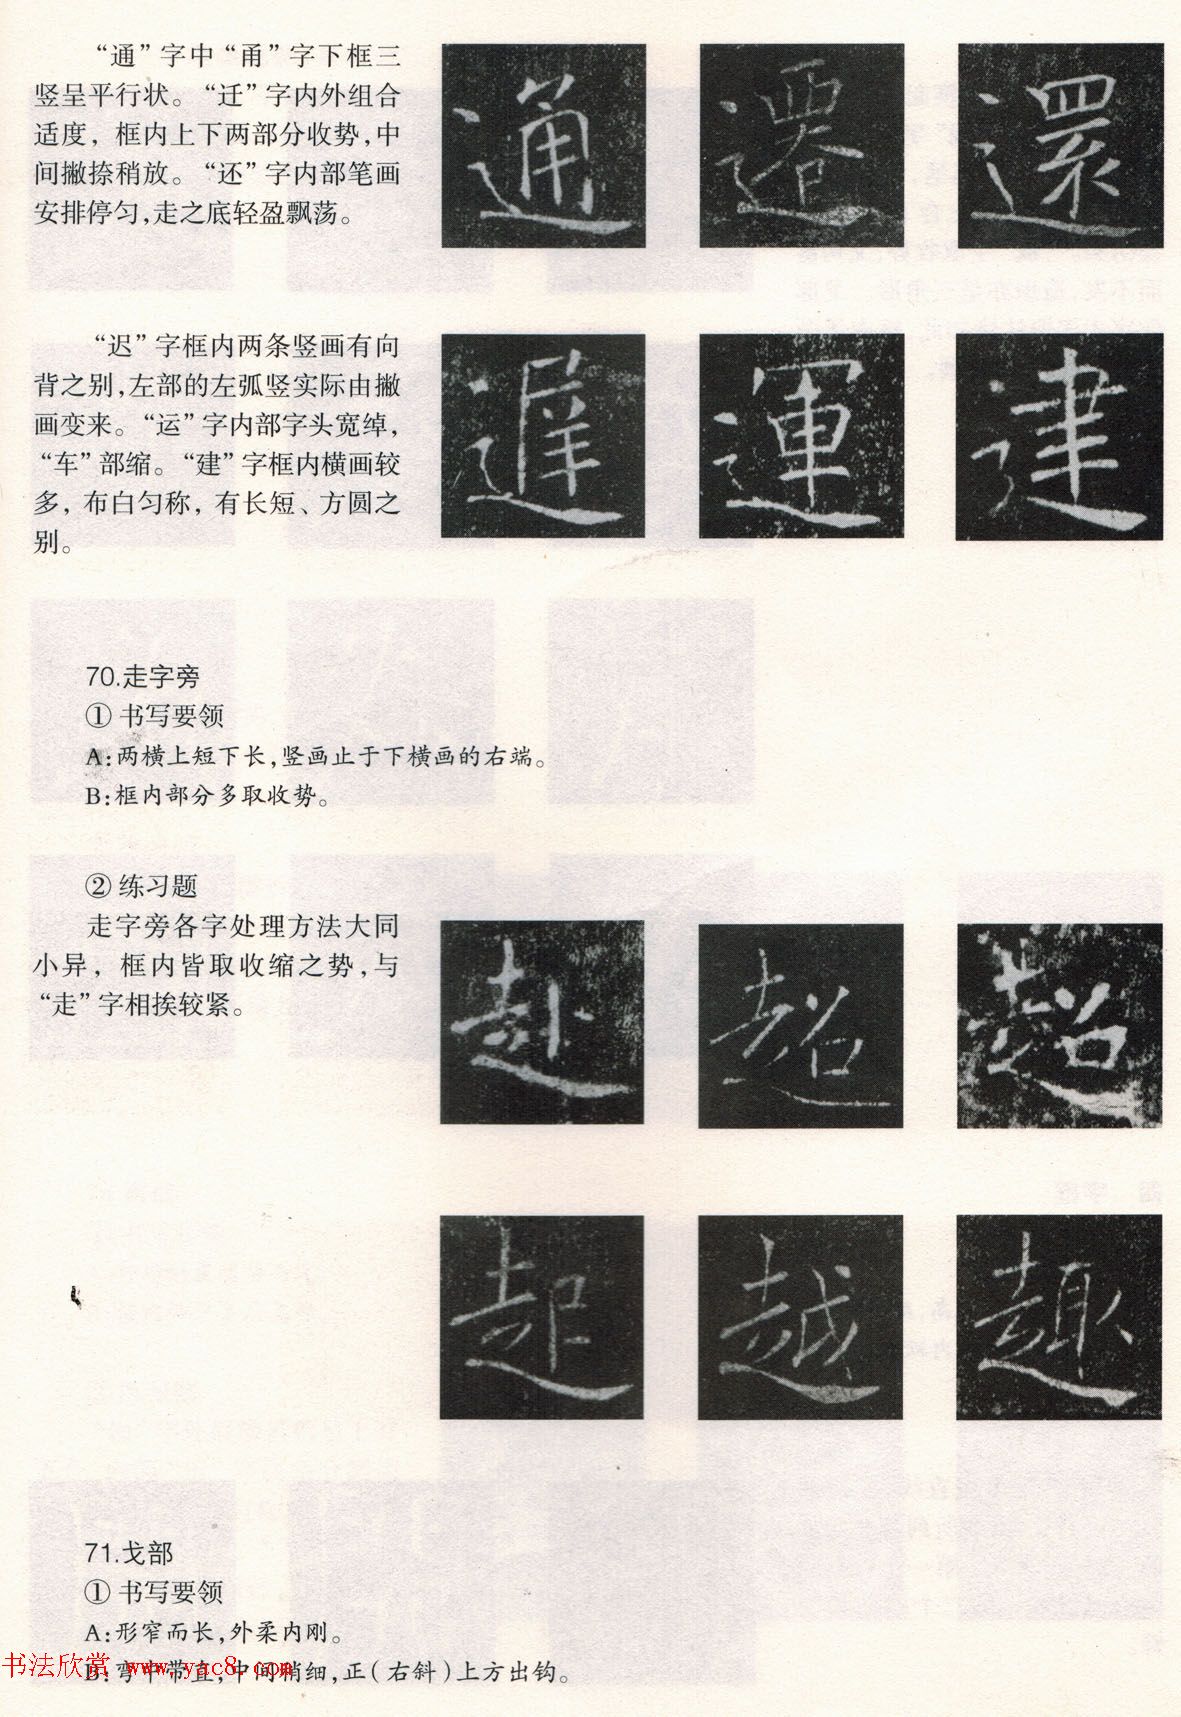 “通”字中“甬”字下框三
竖呈平行状。“迁”字内外组合
适度，框内上下两部分收势，中
间撇捺稍放。“还”字内部笔画
安排停匀，走之底轻盈飘荡。
通 遷 還
“迟”字框内两条竖画有向
背之别，左部的左弧竖实际由撇
画变来。“运”字内部字头宽绰，
“车”部缩。“建”字框内横画较
多，布白匀称，有长短、方圆之
别。
遲 運 建
70.走字旁
① 书写要领
A:两横上短下长，竖画止于下横画的右端。
B:框内部分多取收势。
② 练习题
走字旁各字处理方法大同
小异，框内皆取收缩之势，与
“走”字相挨较紧。
赴 超 超
起 越 趣
71.戈部
① 书写要领
A:形窄而长，外柔内刚。
B:弯中带直，中间稍细，正（右斜）上方出钩。
书法欣赏 www.yac8.com